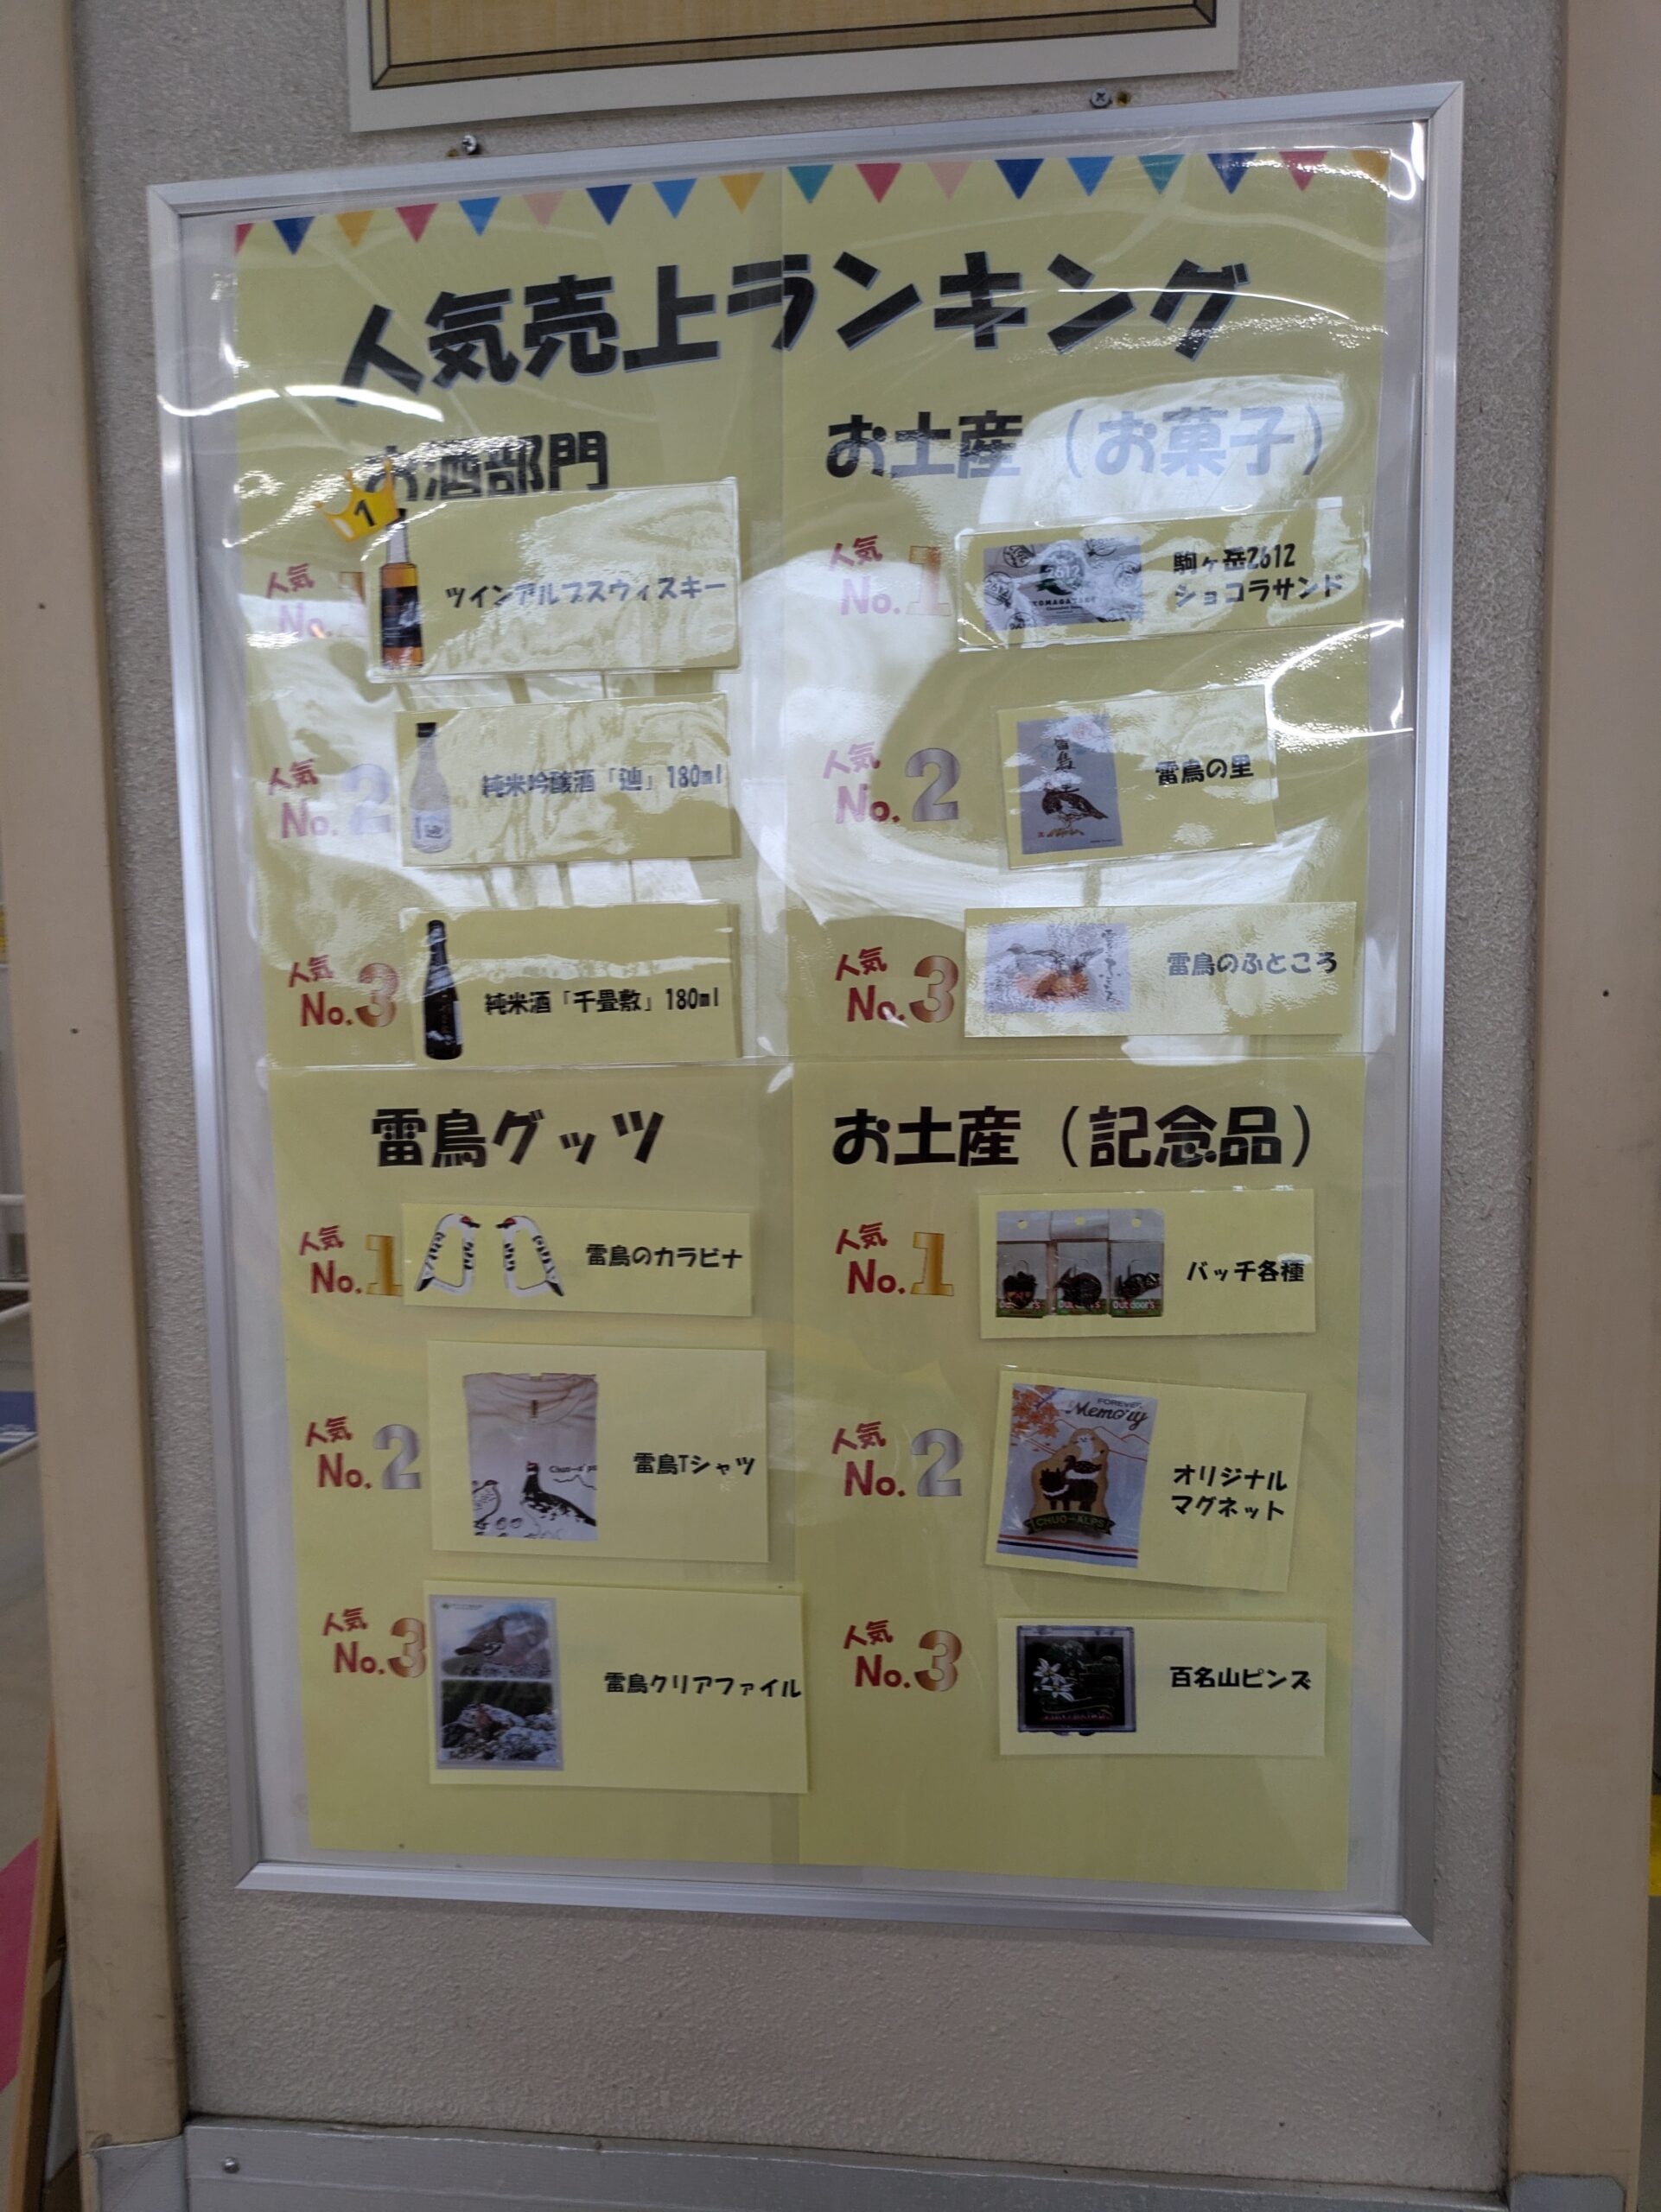 人気売上ランキング
お酒部門
1
人気
No.1
ツインアルプスウィスキー
人気
No.2
純米吟醸酒「辿」180ml
人気
No.3
純米酒「千畳敷」180ml
お土産（お菓子）
人気
No.1
2612
駒ヶ岳2612
ショコラサンド
人気
No.2
雷鳥
雷鳥の里
人気
No.3
雷鳥のふところ
雷鳥グッツ
人気
No.1
雷鳥のカラビナ
人気
No.2
雷鳥Tシャツ
人気
No.3
雷鳥クリアファイル
お土産（記念品）
人気
No.1
Outdoor's
バッチ各種
人気
No.2
FOREVER
Memory
CHUO-ALPS
オリジナル
マグネット
人気
No.3
百名山ピンズ